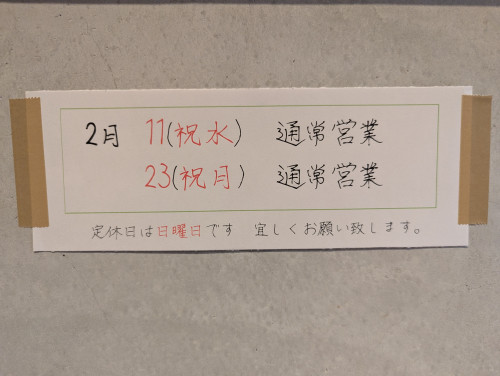 2月 11(祝水) 通常営業
23(祝月) 通常営業
定休日は日曜日です 宜しくお願い致します。